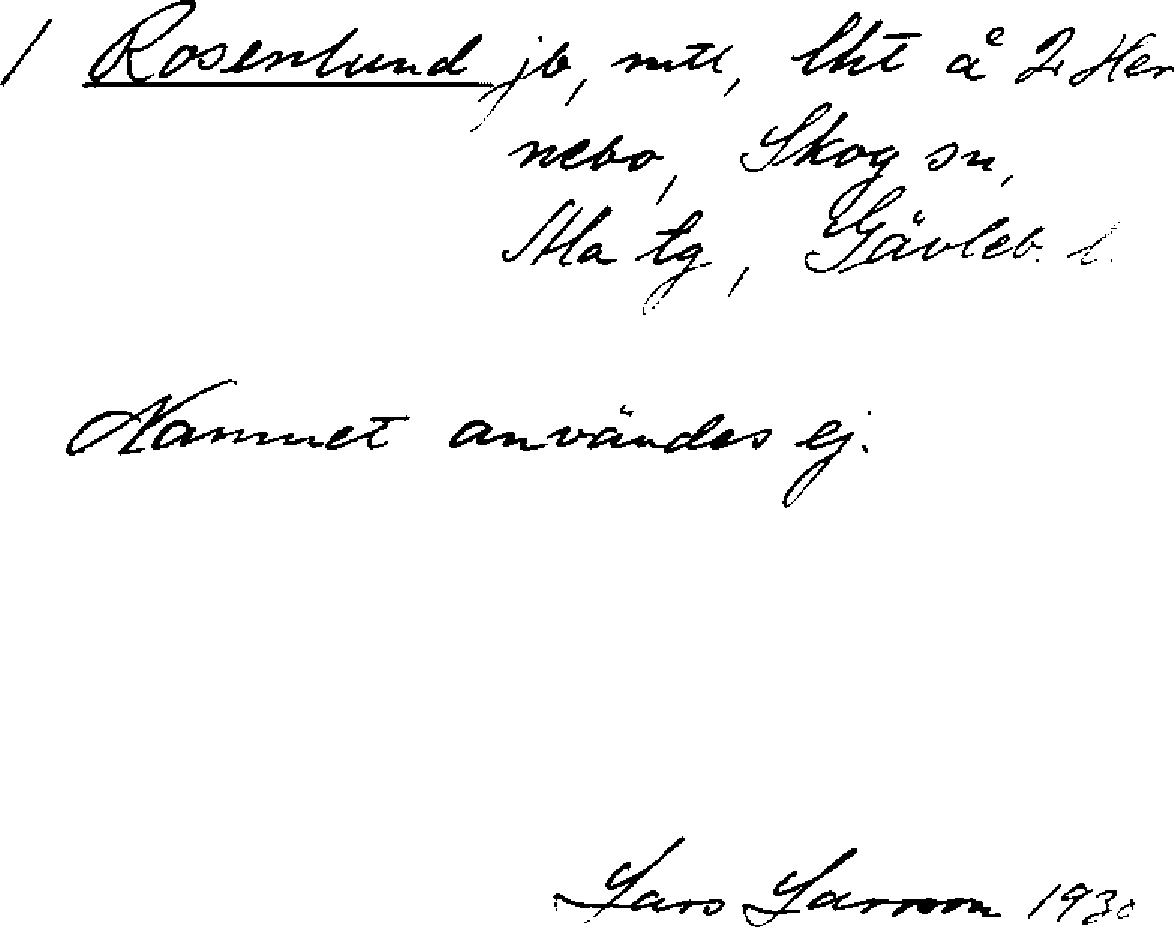 / Rosenlund jb, mtl, lht å 2 Her
nebo, Skog sn,
Ala tg, Gävleb. l.
Namnet användes ej.
Lars Larsson 1930